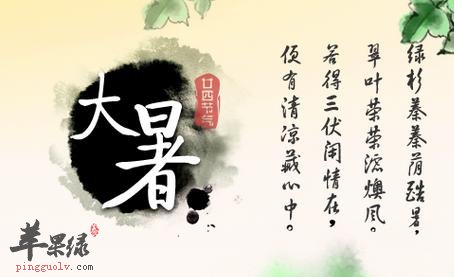 大暑
廿四节气
绿杉蓁蓁荫酷暑，
翠叶荣荣滤燠风。
若得三伏闲情在，
便有清凉藏心中。
苹果绿
pingguolv.com